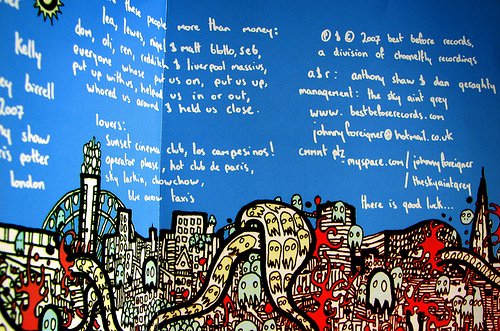 Kelly
ey birrell
2007
y show
is potter
london
these people
more than money:
len, lewes, nigel & matt bbllo, seb,
dom, oli, ren, & liverpool massive,
everyone whose put us on, put us up,
put up with us, helped us in or out,
whored us around & held us close.
lovers:
Sunset cinema club, los campesinos!
operator please, hot club de paris,
sky larkin, chowchow,
the arrow taxis
℗ & © 2007 best before records,
a division of channelfly recordings
a & r: anthony shaw & dan geraghty
management: the sky aint grey
www.bestbeforerecords.com
johnnyforeigner@hotmail.co.uk
cmmnt plz myspace.com/johnnyforeigner
/theskyaintgrey
there is good luck...